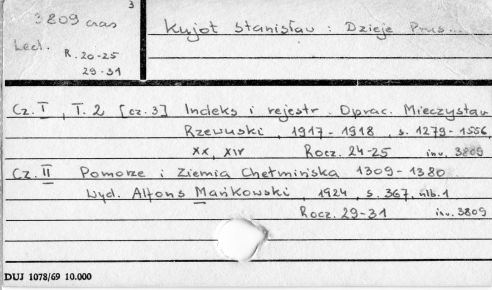 3
3809 cras
Lecl.
R. 20-25
29-31
Kujot Stanisław : Dzieje Prus...
Cz. I , T. 2 [cz. 3] Indeks i rejestr. Oprac. Mieczysław
Rzewuski , 1917-1918 , s. 1279-1556,
XX, XIV Rocz. 24-25 inv. 3809
Cz. II Pomorze i Ziemia Chełmińska 1309-1380
Wyd. Alfons Mańkowski , 1924 , s. 367, nlb. 1
Rocz. 29-31 inv. 3809
DUJ 1078/69 10.000